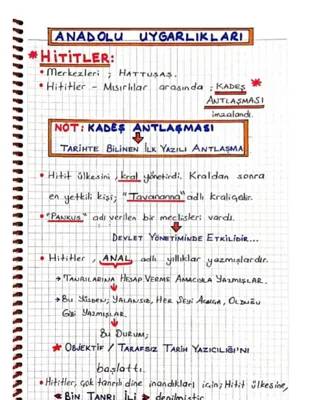 ANADOLU UYGARLIKLARI
* HİTİTLER:
• Merkezleri ; HATTUŞAŞ.
• Hititler - Mısırlılar arasında ; KADEŞ *
ANTLAŞMASI
imzalandı.
NOT: KADEŞ ANTLAŞMASI
TARİHTE BİLİNEN İLK YAZILI ANTLAŞMA
• Hitit ülkesini, kral yönetirdi. Kraldan sonra
en yetkili kişi; "Tavananna" adlı kraliçedir.
• "PANKUŞ" adı verilen bir meclisleri vardı.
DEVLET YÖNETİMİNDE ETKİLİDİR...
• Hititler, ANAL adlı yıllıklar yazmışlardır.
→ TANRILARINA HESAP VERME AMACIYLA YAZMIŞLAR.
→ BU YÜZDEN; YALANSIZ, HER ŞEYİ AÇIKÇA, OLDUĞU
GİBİ YAZMIŞLAR.
→ BU DURUM;
* OBJEKTİF / TARAFSIZ TARİH YAZICILIĞI'NI
başlattı.
• Hititler, çok tanrılı dine inandıkları için; Hitit ülkesine,
* BİN TANRI İLİ * denilmiştir.